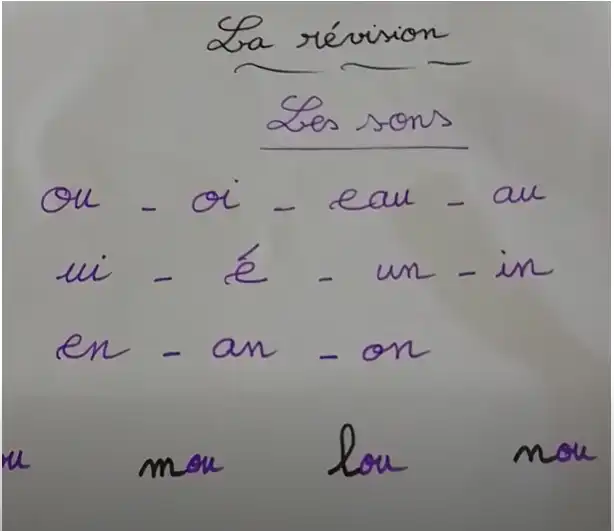 La révision
Les sons
ou - oi - eau - au
ui - é - un - in
en - an - on
ou mou lou nou